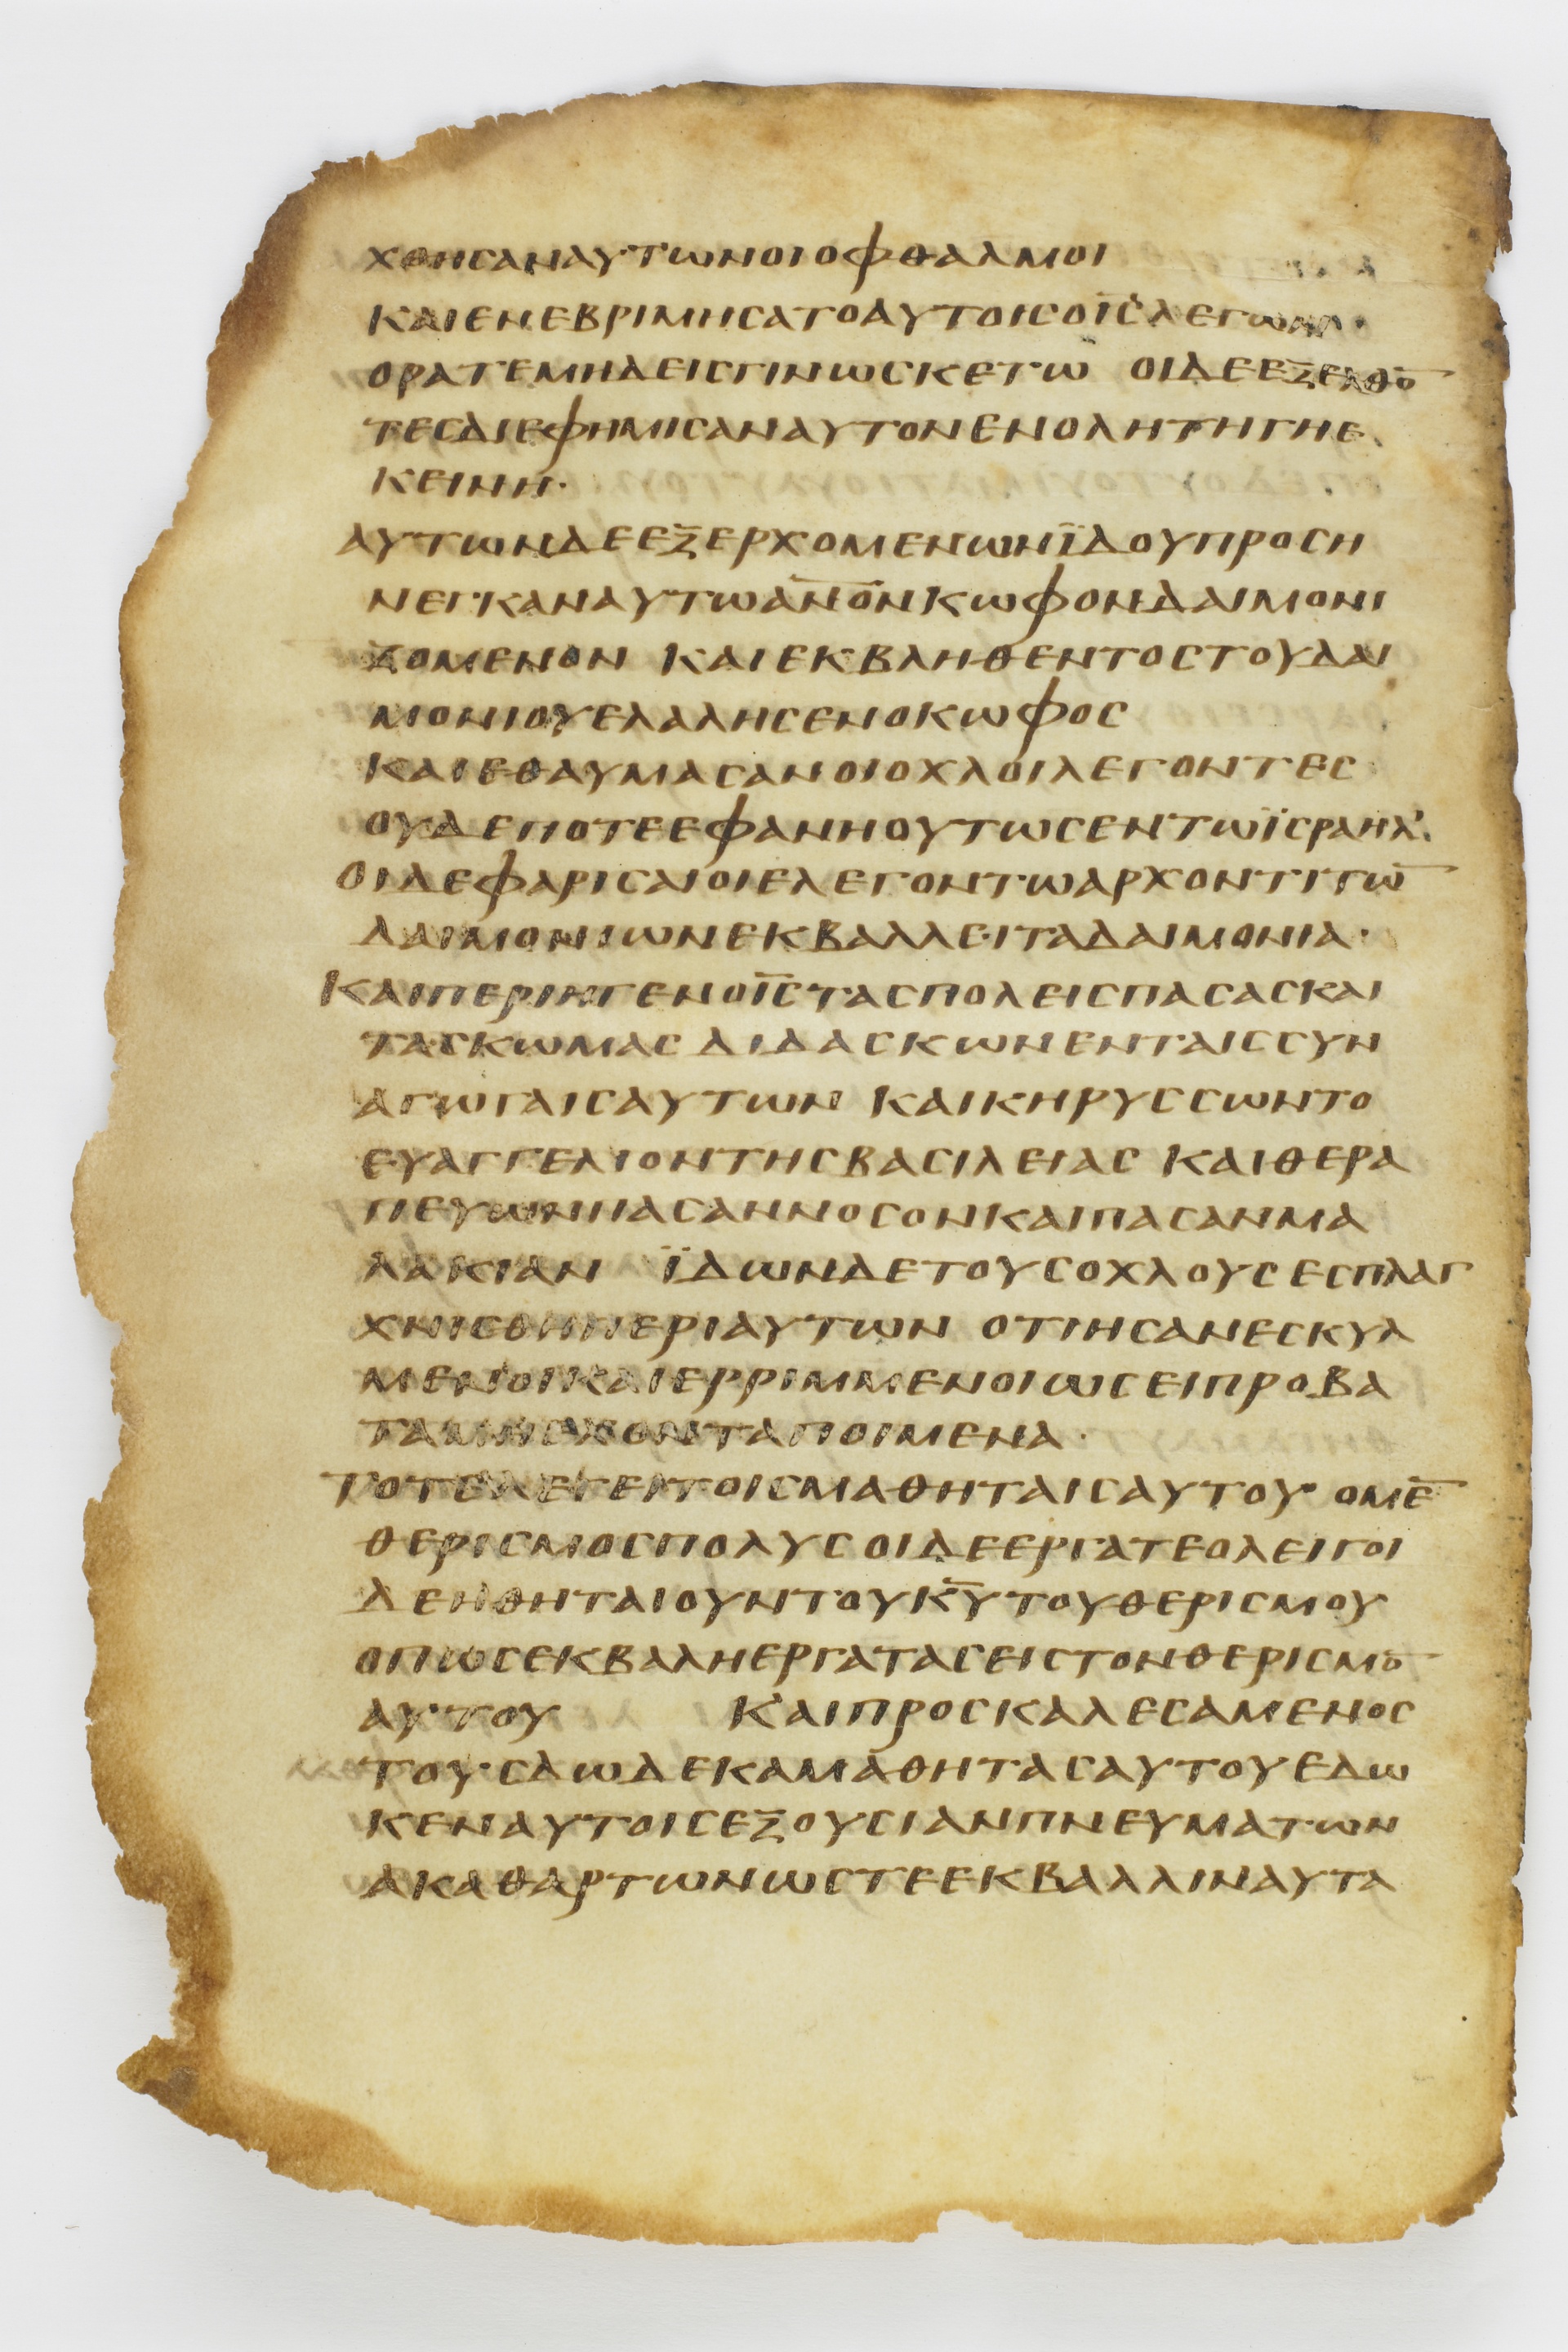 ΧΘΗϹΑΝΑΥΤΩΝΟΙΟΦΘΑΛΜΟΙ
ΚΑΙΕΝΕΒΡΙΜΗϹΑΤΟΑΥΤΟΙϹΟΙ̅Ϲ̅ΛΕΓΩΝ
ΟΡΑΤΕΜΗΔΕΙϹΓΙΝΩϹΚΕΤΩ ΟΙΔΕΕΞΕΛΘΟ̅
ΤΕϹΔΙΕΦΗΜΙϹΑΝΑΥΤΟΝΕΝΟΛΗΤΗΓΗΕ
ΚΕΙΝΗ·
ΑΥΤΩΝΔΕΕΞΕΡΧΟΜΕΝΩΝΪΔΟΥΠΡΟϹΗ
ΝΕΓΚΑΝΑΥΤΩΑ̅Ν̅Ο̅Ν̅ΚΩΦΟΝΔΑΙΜΟΝΙ
ΖΟΜΕΝΟΝ ΚΑΙΕΚΒΛΗΘΕΝΤΟϹΤΟΥΔΑΙ
ΜΟΝΙΟΥΕΛΑΛΗϹΕΝΟΚΩΦΟϹ
ΚΑΙΕΘΑΥΜΑϹΑΝΟΙΟΧΛΟΙΛΕΓΟΝΤΕϹ
ΟΥΔΕΠΟΤΕΕΦΑΝΗΟΥΤΩϹΕΝΤΩΪϹΡΑΗΛ·
ΟΙΔΕΦΑΡΙϹΑΙΟΙΕΛΕΓΟΝΤΩΑΡΧΟΝΤΙΤΩ̅
ΔΑΙΜΟΝΙΩΝΕΚΒΑΛΛΕΙΤΑΔΑΙΜΟΝΙΑ·
ΚΑΙΠΕΡΙΗΓΕΝΟΙ̅Ϲ̅ΤΑϹΠΟΛΕΙϹΠΑϹΑϹΚΑΙ
ΤΑϹΚΩΜΑϹΔΙΔΑϹΚΩΝΕΝΤΑΙϹϹΥΝ
ΑΓΩΓΑΙϹΑΥΤΩΝ ΚΑΙΚΗΡΥϹϹΩΝΤΟ
ΕΥΑΓΓΕΛΙΟΝΤΗϹΒΑϹΙΛΕΙΑϹ ΚΑΙΘΕΡΑ
ΠΕΥΩΝΠΑϹΑΝΝΟϹΟΝΚΑΙΠΑϹΑΝΜΑ
ΛΑΚΙΑΝ ΪΔΩΝΔΕΤΟΥϹΟΧΛΟΥϹΕϹΠΛΑΓ
ΧΝΙϹΘΗΠΕΡΙΑΥΤΩΝ ΟΤΙΗϹΑΝΕϹΚΥΛ
ΜΕΝΟΙΚΑΙΕΡΡΙΜΜΕΝΟΙΩϹΕΙΠΡΟΒΑ
ΤΑΜΗΕΧΟΝΤΑΠΟΙΜΕΝΑ·
ΤΟΤΕΛΕΓΕΙΤΟΙϹΜΑΘΗΤΑΙϹΑΥΤΟΥ ΟΜΕ̅
ΘΕΡΙϹΜΟϹΠΟΛΥϹΟΙΔΕΕΡΓΑΤΕΟΛΕΙΓΟΙ
ΔΕΗΘΗΤΑΙΟΥΝΤΟΥΚ̅Υ̅ΤΟΥΘΕΡΙϹΜΟΥ
ΟΠΩϹΕΚΒΑΛΗΕΡΓΑΤΑϹΕΙϹΤΟΝΘΕΡΙϹΜΟ̅
ΑΥΤΟΥ ΚΑΙΠΡΟϹΚΑΛΕϹΑΜΕΝΟϹ
ΤΟΥϹΔΩΔΕΚΑΜΑΘΗΤΑϹΑΥΤΟΥΕΔΩ
ΚΕΝΑΥΤΟΙϹΕΞΟΥϹΙΑΝΠΝΕΥΜΑΤΩΝ
ΑΚΑΘΑΡΤΩΝΩϹΤΕΕΚΒΑΛΛΙΝΑΥΤΑ